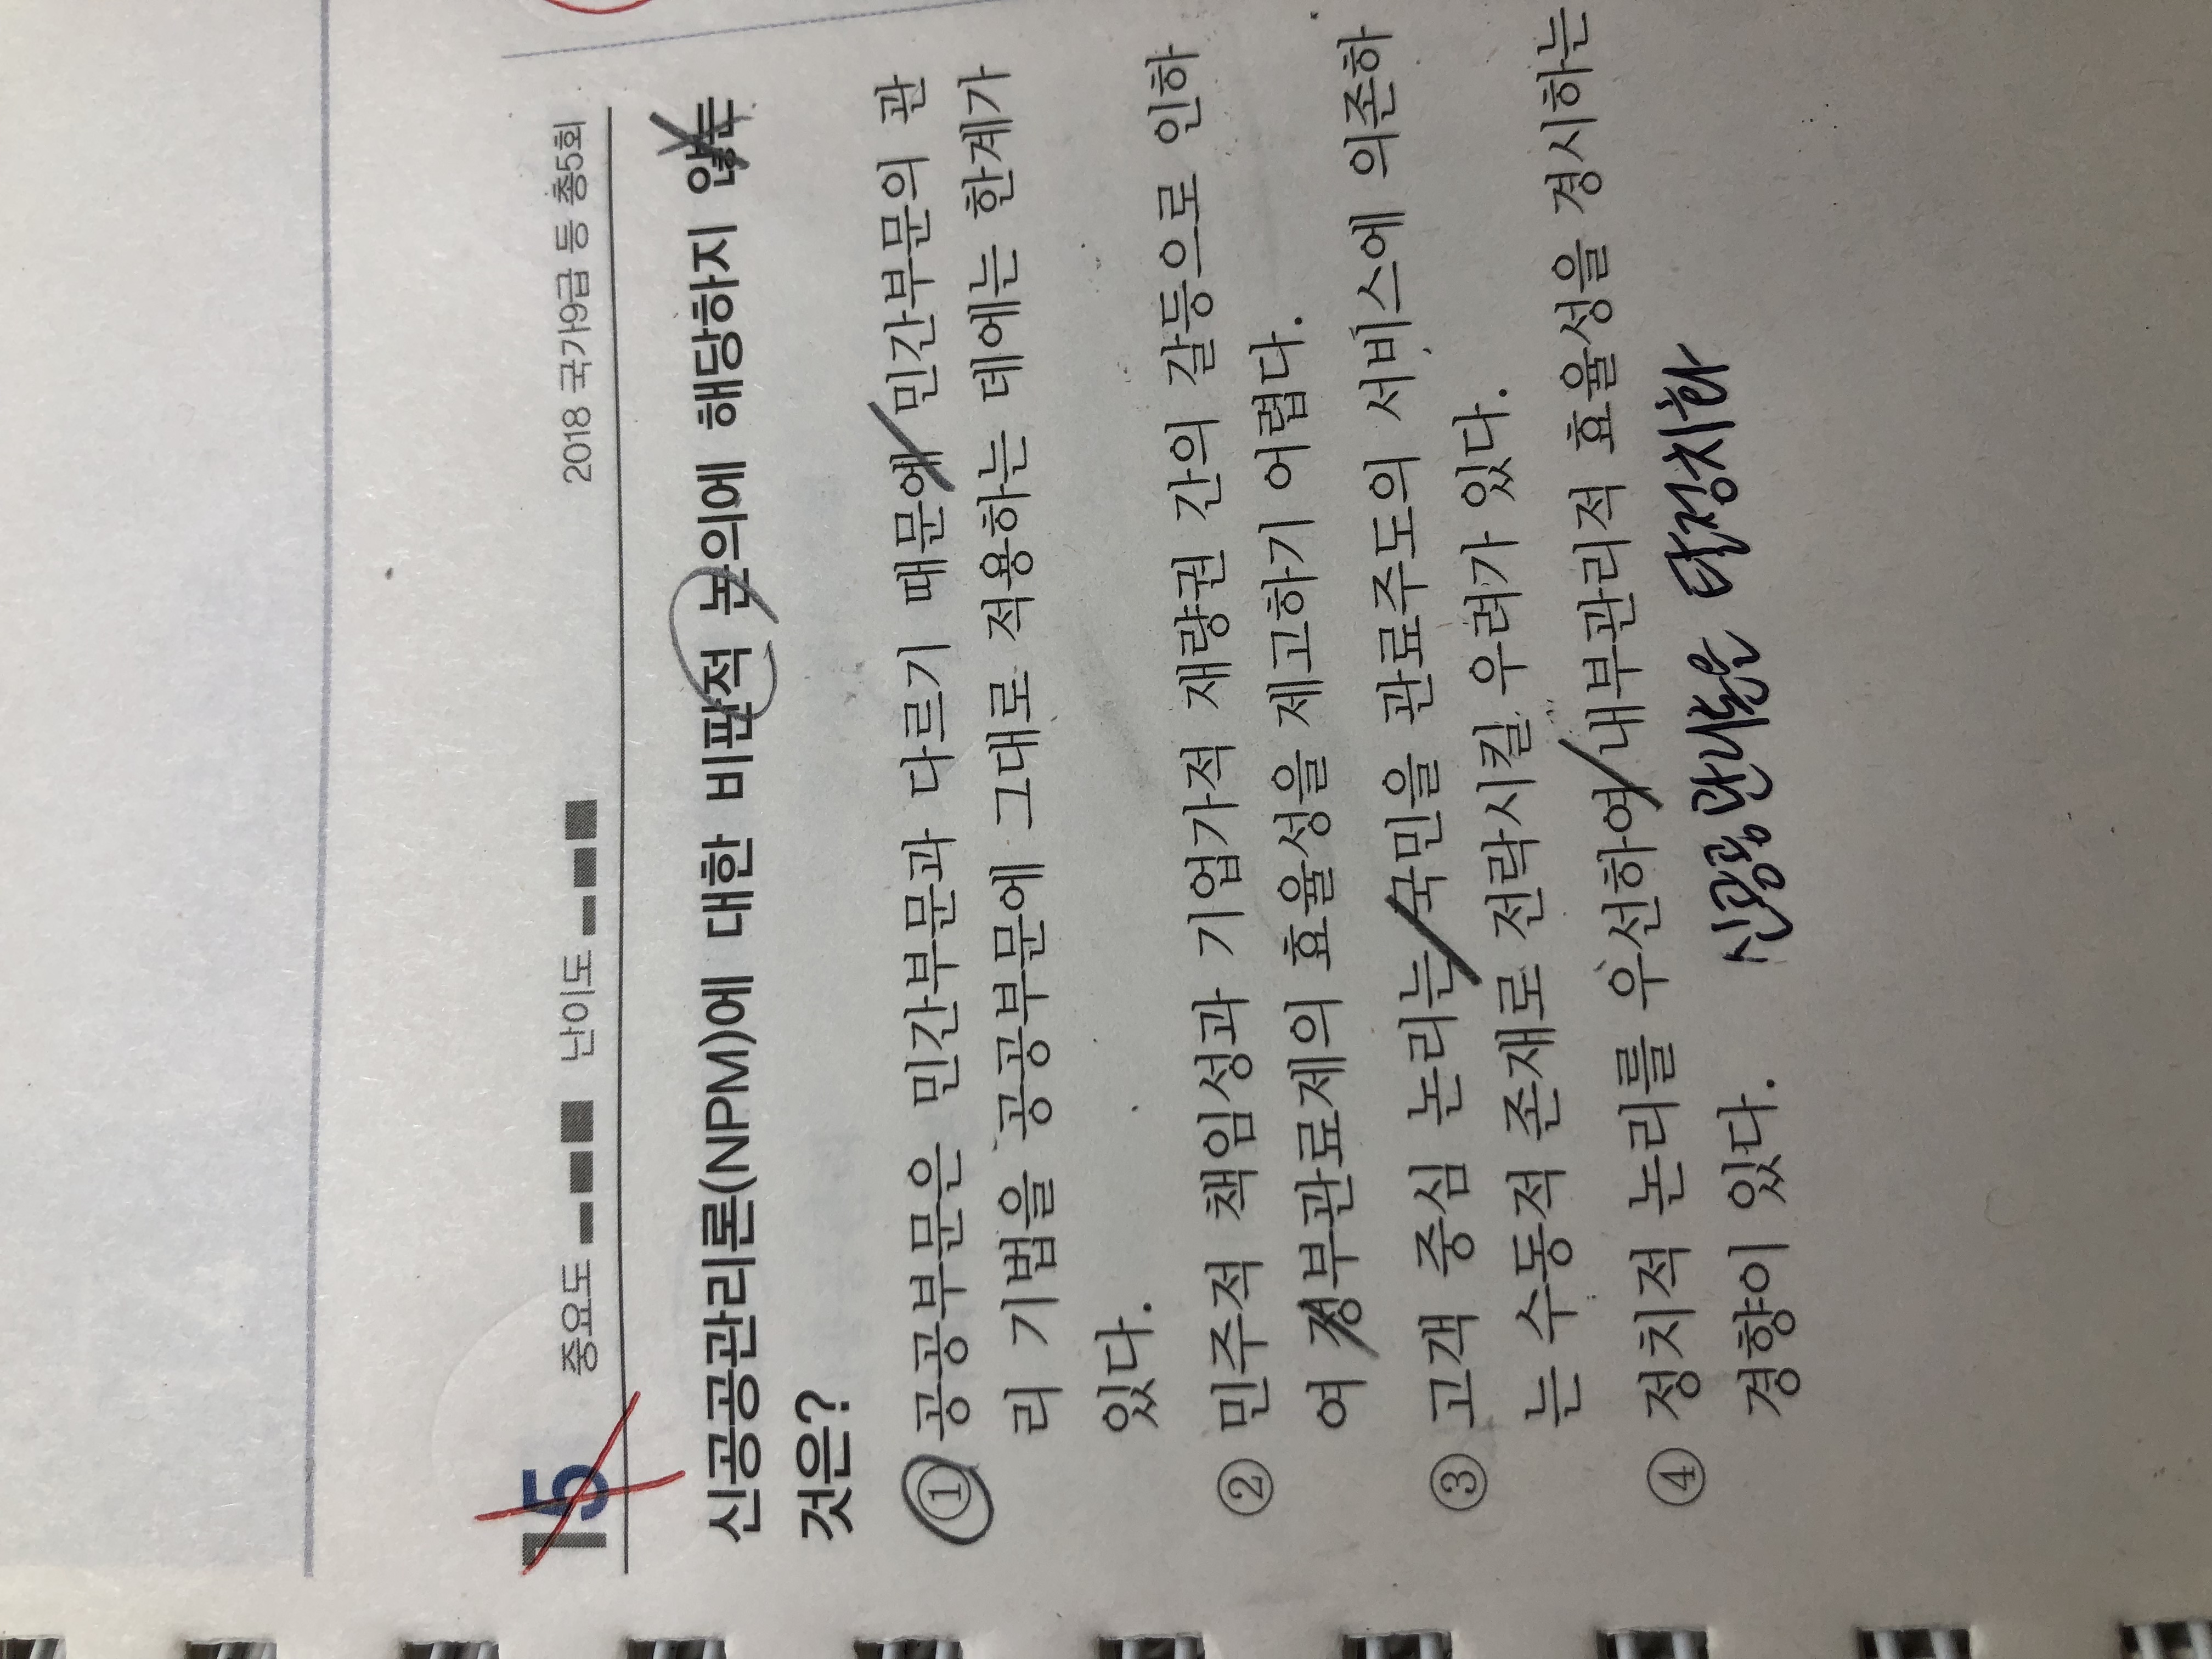 15 중요도 난이도 2018 국가9급 등 총5회
신공공관리론(NPM)에 대한 비판적 논의에 해당하지 않는
것은?
① 공공부문은 민간부문과 다르기 때문에 민간부문의 관
리 기법을 공공부문에 그대로 적용하는 데에는 한계가
있다.
② 민주적 책임성과 기업가적 재량권 간의 갈등으로 인하
여 정부관료제의 효율성을 제고하기 어렵다.
③ 고객 중심 논리는 국민을 관료주도의 서비스에 의존하
는 수동적 존재로 전락시킬 우려가 있다.
④ 정치적 논리를 우선하여 내부관리적 효율성을 경시하는
경향이 있다.
탈정치화